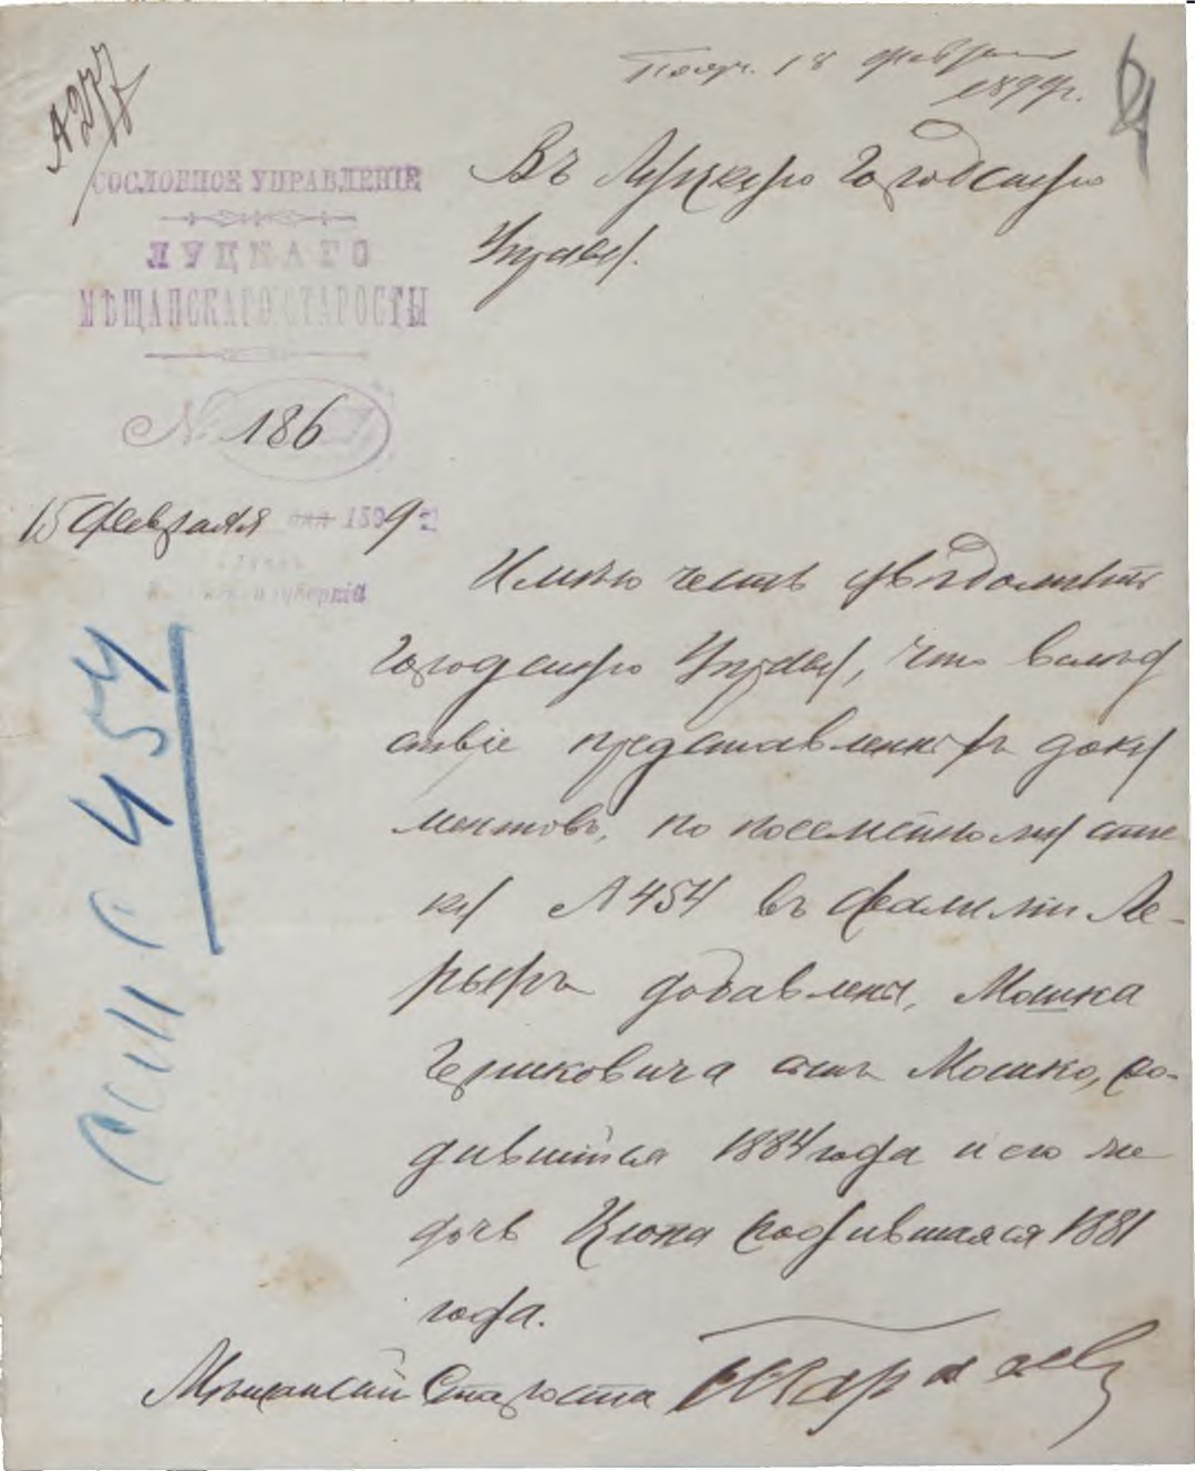 А 277
Получ. 18 февраля
1899 г.
СОСЛОВНОЕ УПРАВЛЕНІЕ
ЛУЦКАГО
МѢЩАНСКАГО СТАРОСТЫ
№ 186
15 февраля дня 1899 г.
губерніи
Въ Луцкую Городскую
Управу.
Имѣю честь увѣдомить
Городскую Управу, что вслѣд
ствіе представленныхъ доку
ментовъ, по посемейному спис
ку № 454 въ фамиліи Ле-
рыхъ добавлены, Мошка
Гершковича сынъ Мошко, ро-
дившійся 1884 года и его же
дочь родившаяся 1881
года.
Мѣщанскій Староста
454